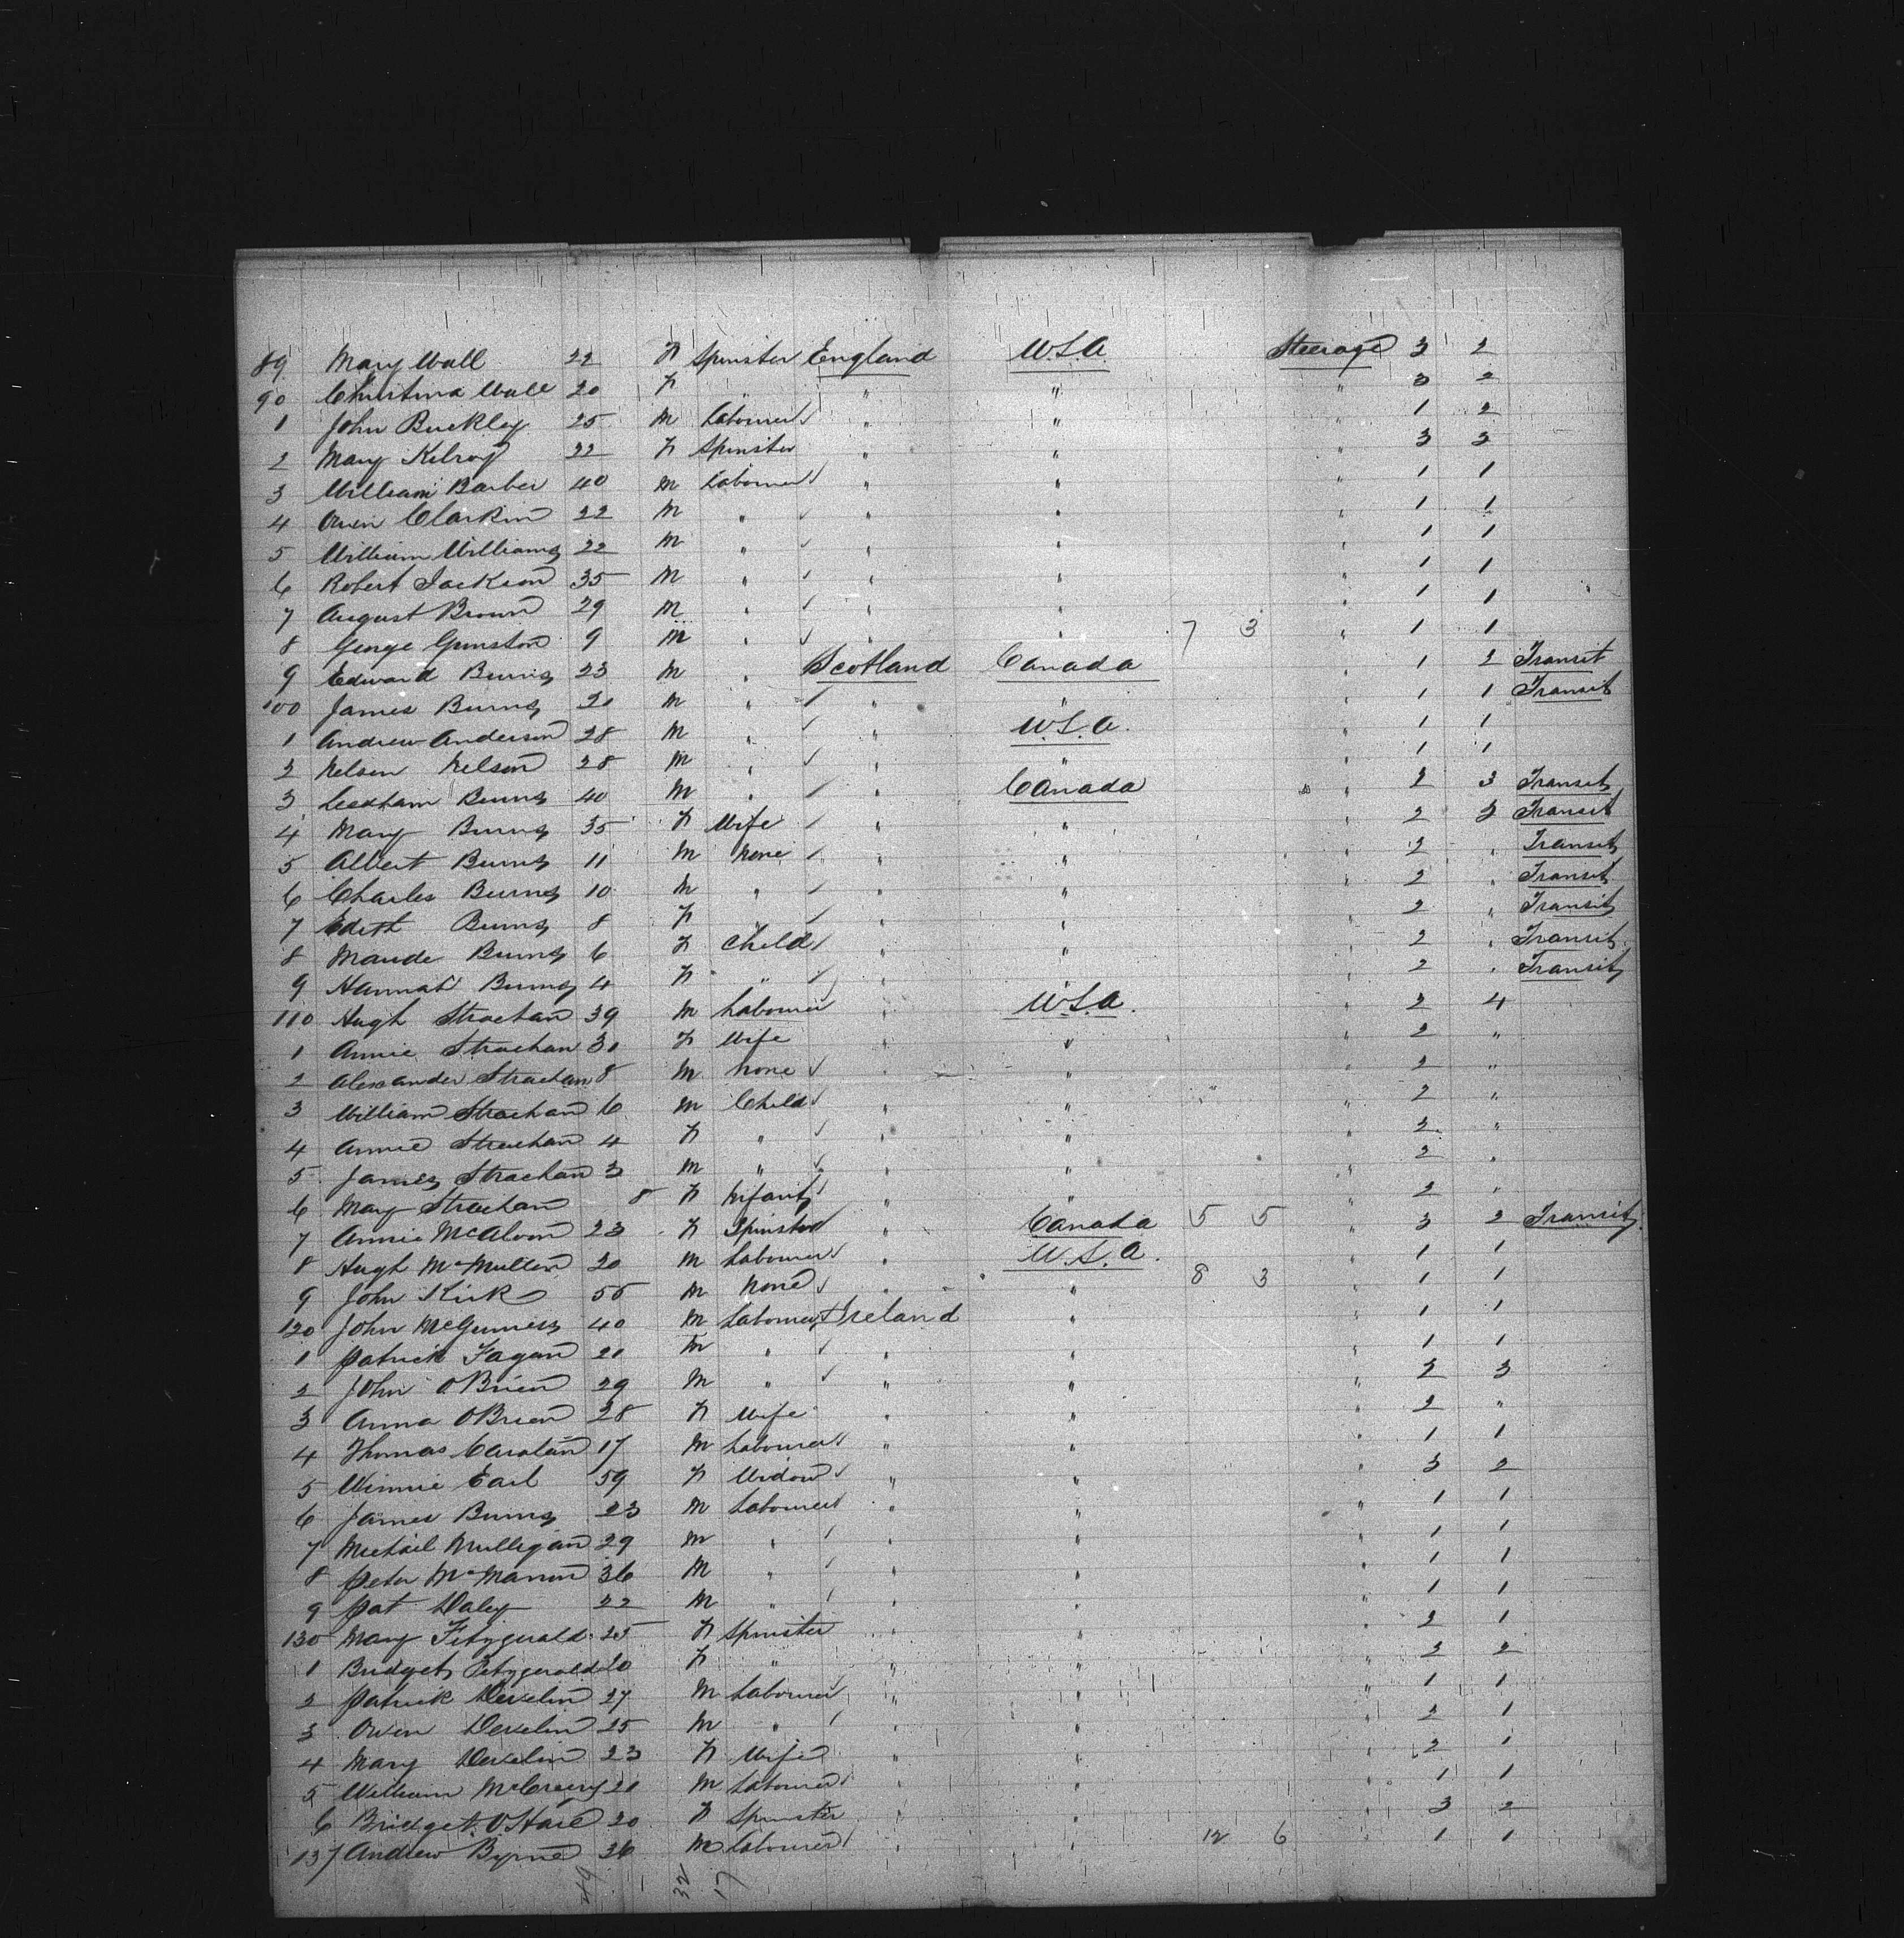 89 Mary Wall 22 F Spinster England U.S.A. Steerage 3 2
90 Christina Wall 20 F " " " " 3 2
1 John Buckley 25 M Labourer " " " 1 2
2 Mary Kilroy 22 F Spinster " " " 3 2
3 William Barber 40 M Labourer " " " 1 1
4 Owen Clarkin 22 M " " " " 1 1
5 William Williams 22 M " " " " 1 1
6 Robert Jackson 35 M " " " " 1 1
7 August Brown 29 M " " " " 1 1
8 George Gunston 9 M " " " 7 3 " 1 1
9 Edward Burns 23 M " Scotland Canada " 1 2 Transit
100 James Burns 21 M " " " " 1 1 Transit
1 Andrew Anderson 28 M " " U.S.A. " 1 1
2 Nelson Nelson 28 M " " " " 1 1
3 Burns 40 M " " Canada " 2 3 Transit
4 Mary Burns 35 F Wife " " " 2 3 Transit
5 Albert Burns 11 M None " " " 2 " Transit
6 Charles Burns 10 M " " " " 2 " Transit
7 Edith Burns 8 F " " " " 2 " Transit
8 Maude Burns 6 F Child " " " 2 " Transit
9 Hannah Burns 4 F " " " " 2 " Transit
110 Hugh Strachan 39 M Labourer " U.S.A. " 2 4
1 Annie Strachan 31 F Wife " " " 2 "
2 Alexander Strachan 8 M None " " " 2 "
3 William Strachan 6 M Child " " " 2 "
4 Annie Strachan 4 F " " " " 2 "
5 James Strachan 3 M " " " " 2 "
6 Mary Strachan 8 F Infant " " " 2 "
7 Annie McAloon 23 F Spinster " Canada 5 5 " 3 2 Transit
8 Hugh McMullen 20 M Labourer " U.S.A. " 1 1
9 John Kirk 55 M None " " 8 3 " 1 1
120 John McGuiness 40 M Labourer Ireland " " 1 1
1 Patrick Fagan 21 M " " " " 1 1
2 John O'Brien 29 M " " " " 2 3
3 Anna O'Brien 28 F Wife " " " 2 "
4 Thomas Carolan 17 M Labourer " " " 1 1
5 Winnie Earl 59 F Widow " " " 3 2
6 James Burns 23 M Labourer " " " 1 1
7 Michael Mulligan 29 M " " " " 1 1
8 Peter McMahon 36 M " " " " 1 1
9 Pat Daley 22 M " " " " 1 1
130 Mary Fitzgerald 25 F Spinster " " " 2 1
1 Bridget Fitzgerald 20 F " " " " 2 2
2 Patrick Develin 27 M Labourer " " " 1 1
3 Owen Develin 25 M " " " " 2 1
4 Mary Develin 23 F Wife " " " 2 1
5 William McCreery 21 M Labourer " " " 1 1
6 Bridget O'Hare 20 F Spinster " " " 3 2
137 Andrew Byrne 26 M Labourer " " 12 6 " 1 1
49 32 17